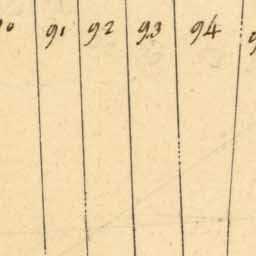 91 92 93 94